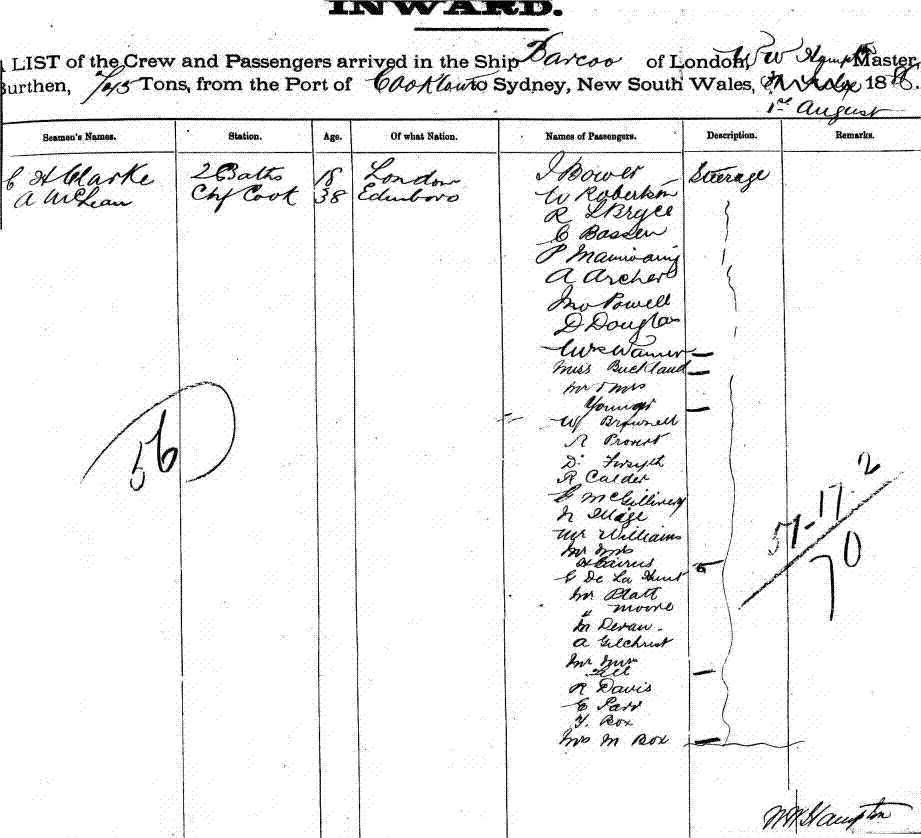 INWARD.
LIST of the Crew and Passengers arrived in the Ship Barcoo of London, W W Hampton Master,
Burthen, Tons, from the Port of Cooktown to Sydney, New South Wales, 1888.
1st August
Seamen's Names. Station. Age. Of what Nation. Names of Passengers. Description. Remarks.
C H Clarke 18 London J Bower Steerage
A McLean Chf Cook 38 Edinboro W Robertson
R L Bryce
C Bassen
P
A Archer
Jno Powell
D Douglas
Warner
Miss Buckland
Mr & Mrs
Younger
W Brownell
R
D. Forsyth
R Calder
McGillivery
Mr Williams
Mr Mrs
E De La Hunt
Mr Platt
" Moore
M Devan
A Gilchrist
Mr Mrs
R Davis
E Parr
T. Box
Mrs M Box
56
57-17 2
70
W W Hampton